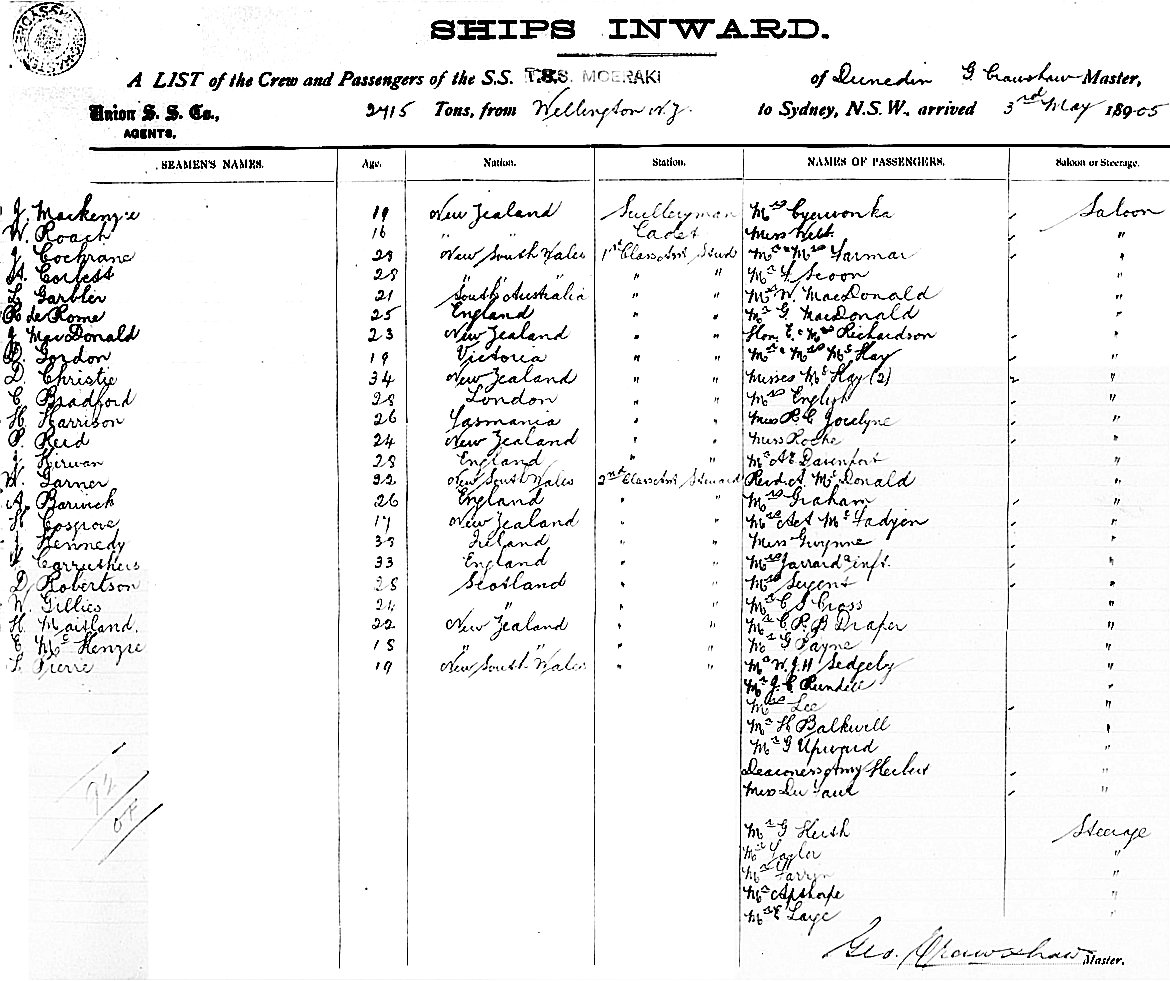 SHIPS INWARD.
A LIST of the Crew and Passengers of the S.S. T.S.S. MOERAKI of Dunedin G Crawshaw Master,
Union S. S. Co., 2715 Tons, from Wellington N.Z. to Sydney, N.S.W., arrived 3rd May 1905
AGENTS.
SEAMEN'S NAMES. Age. Nation. Station. NAMES OF PASSENGERS. Saloon or Steerage.
J. Mackenzie 19 New Zealand Sculleryman Mrs Saloon
W. Roach 16 " " Cadet Miss Webb "
J Cochrane 28 New South Wales 1st Class Asst Stwd Mr & Mrs "
Corfett 28 " " " " Mr "
Garbler 21 South Australia " " Mr W. MacDonald "
R de Rome 25 England " " Mr G. MacDonald "
J MacDonald 23 New Zealand " " Hon. E. & Mrs Richardson "
Gordon 19 Victoria " " Mr & Mrs McHay "
D. Christie 34 New Zealand " " Misses McHay (2) "
C Bradford 28 London " " Mrs English "
H Harrison 26 Tasmania " " Miss R. C Jocelyne "
P. Reid 24 New Zealand " " Miss Roche "
Kirwan 28 England " " Mr A E Davenport "
W. Garner 22 New South Wales 2nd Class Asst Steward Revd A. McDonald "
A. Barwick 26 England " " Mrs Graham "
Cosgrove 17 New Zealand " " Mrs McFadyen "
Kennedy 38 Ireland " " Miss Gwynne "
Carruthers 33 England " " Mrs Jarrard & inft. "
D, Robertson 28 Scotland " " Mrs "
W. Gillies 24 " " " Mr C S Cross "
H. Maitland. 22 New Zealand " " Mr C. P. B Draper "
E. McKenzie 18 " " " " Mr G Payne "
Pierre 19 New South Wales " " Mr W. J. H Sedgeby "
Mr J. C Rundell "
Mrs Lee "
Mr H Balkwill "
Mr G Upward "
Deaconess Amy Herbert "
Miss "
Mr G Hersh Steerage
Mr Taylor "
Mr "
Mr Apthorpe "
Mr E Laye "
Geo. Crawshaw Master.